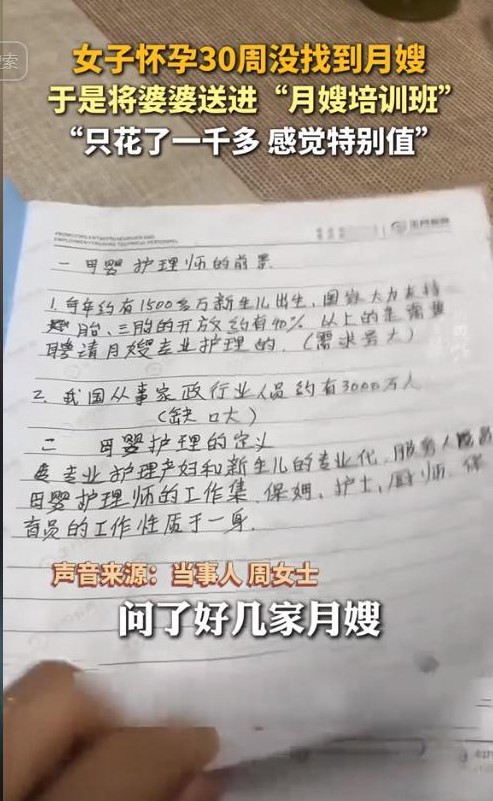 索
女子怀孕30周没找到月嫂
于是将婆婆送进“月嫂培训班”
“只花了一千多 感觉特别值”
一 母婴护理师的前景
1. 每年约有1500多万新生儿出生, 国家大力支持
胎、三胎的开放约有40% 以上的是需要
聘请月嫂专业护理的. (需求量大)
2. 我国从事家政行业人员约有3000万人
(缺口大)
二 母婴护理的定义
专业护理产妇和新生儿的专业化, 服务人员
母婴护理师的工作集. 保姆、护士, 厨师、保
育员的工作性质于一身.
声音来源：当事人 周女士
问了好几家月嫂